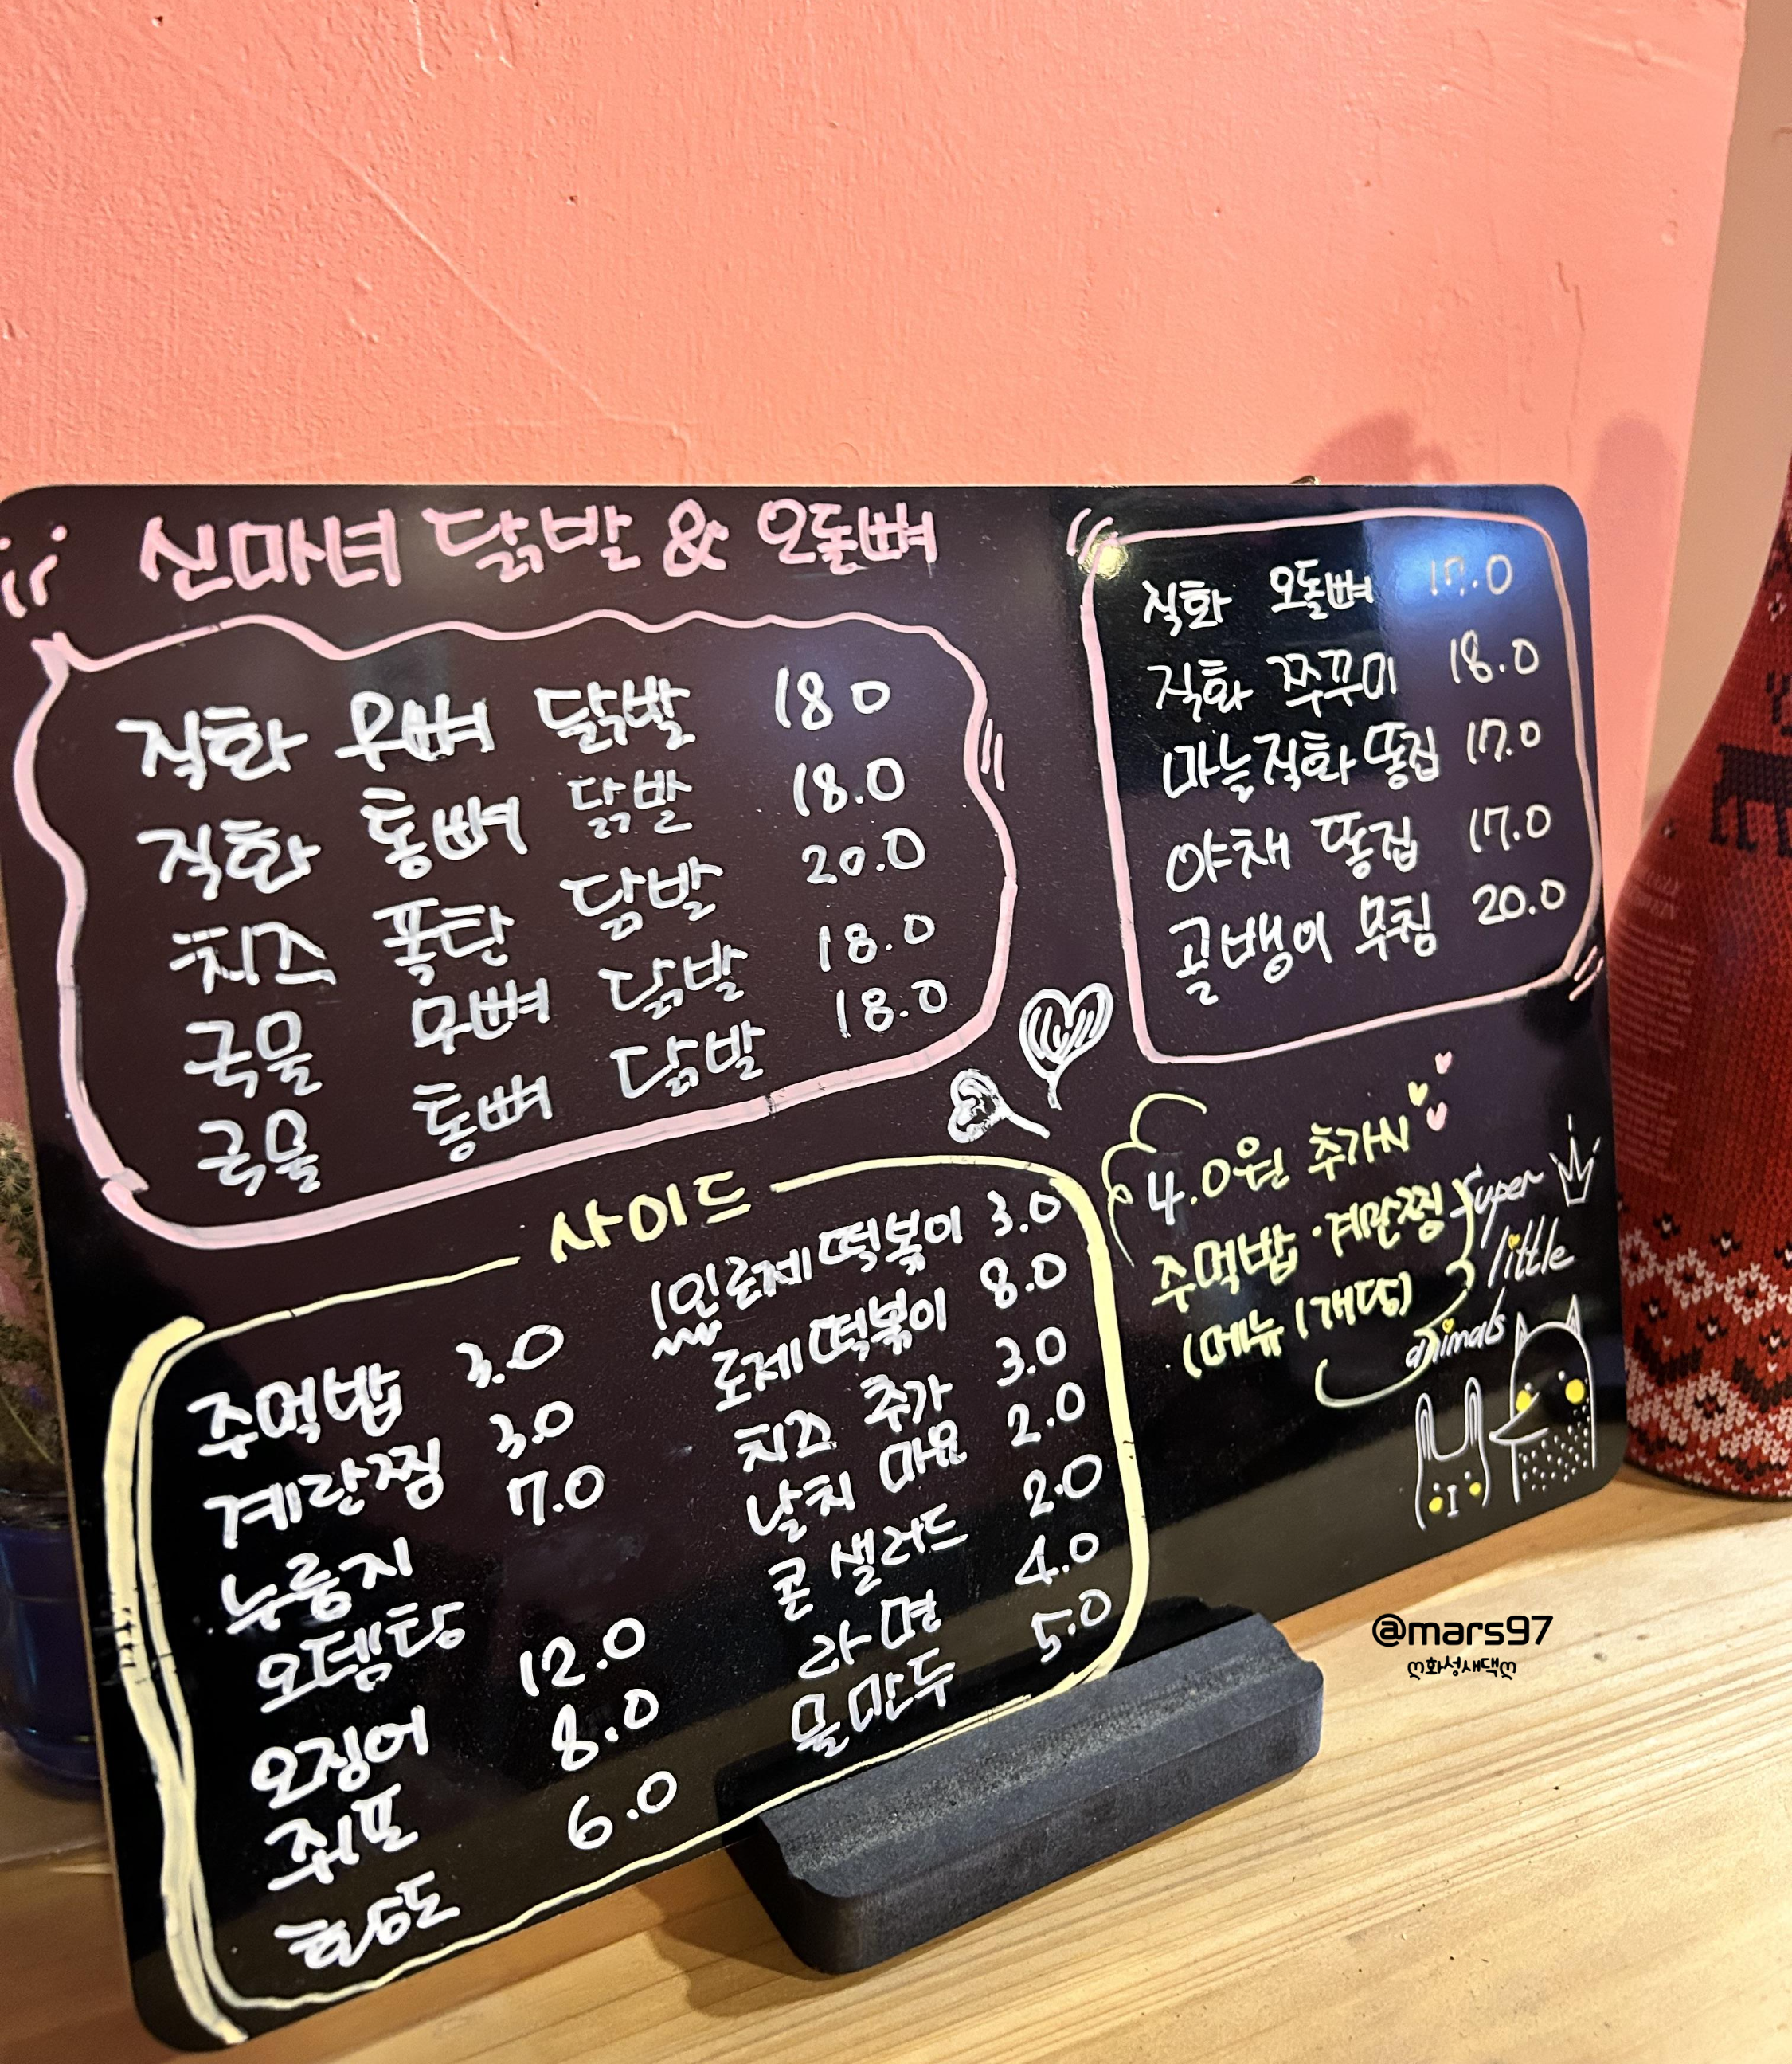 신마녀 닭발 & 오돌뼈
직화 무뼈 닭발 18.0
직화 통뼈 닭발 18.0
치즈 폭탄 닭발 20.0
국물 무뼈 닭발 18.0
국물 통뼈 닭발 18.0
직화 오돌뼈 17.0
직화 쭈꾸미 18.0
마늘직화 똥집 17.0
야채 똥집 17.0
골뱅이 무침 20.0
사이드
주먹밥 3.0
계란찜 3.0
누룽지 7.0
오뎅탕
오징어 12.0
쥐포 8.0
황도 6.0
1인로제떡볶이 3.0
로제떡볶이 8.0
치즈 추가 3.0
날치 마요 2.0
콘 샐러드 2.0
라면 4.0
물만두 5.0
4.0원 추가시
주먹밥·계란찜
(메뉴 1개당)
super
little
animals
@mars97
ღ화성새댁ღ